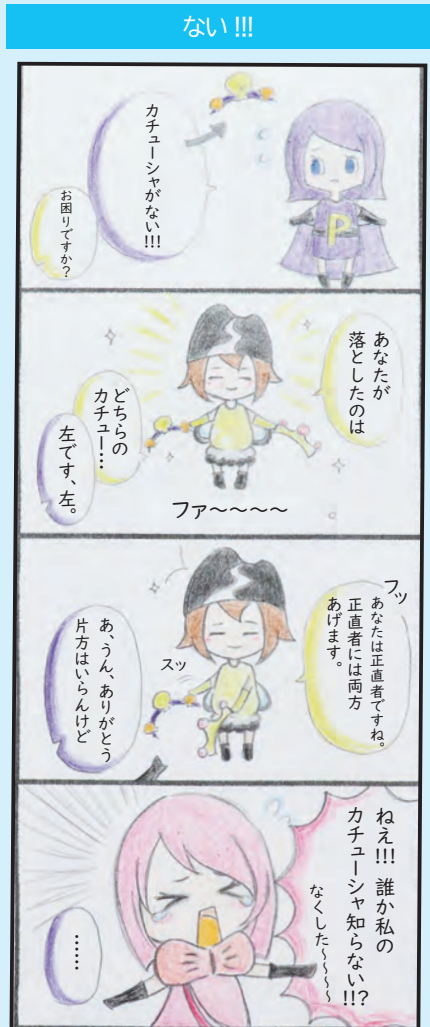 ない!!!
カチューシャがない!!!
お困りですか?
P
あなたが
落としたのは
どちらの
カチュー…
左です、左。
ファ〜〜〜〜
フッ
あなたは正直者ですね。
正直者には両方
あげます。
スッ
あ、うん、ありがとう
片方はいらんけど
ねえ!!! 誰か私の
カチューシャ知らない!!?
なくした〜〜〜〜
……